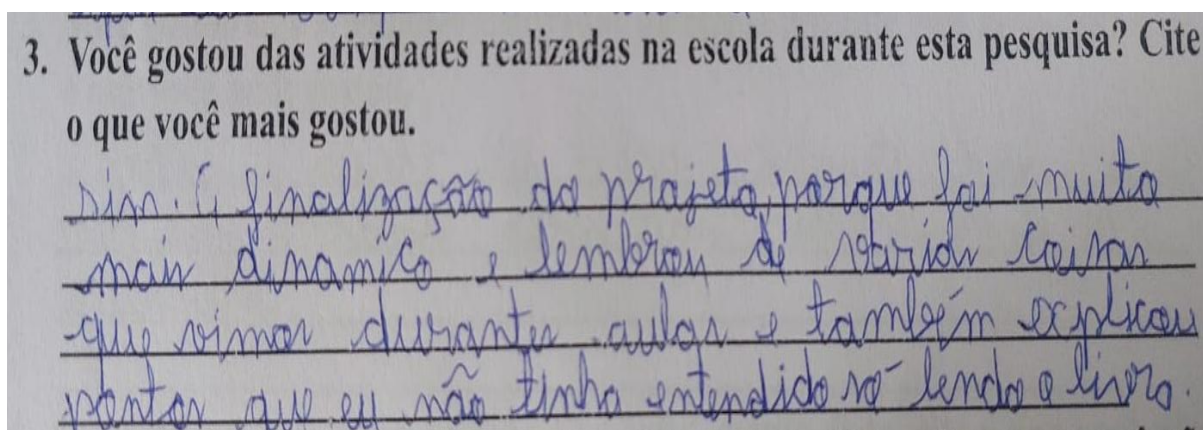 3. Você gostou das atividades realizadas na escola durante esta pesquisa? Cite
o que você mais gostou.
Sim. A finalização do projeto, porque foi muito
mais dinamico e lembrou de varias coisas
que vimos durantes aulas e também explicou
pontos que eu não tinha entendido só lendo o livro.